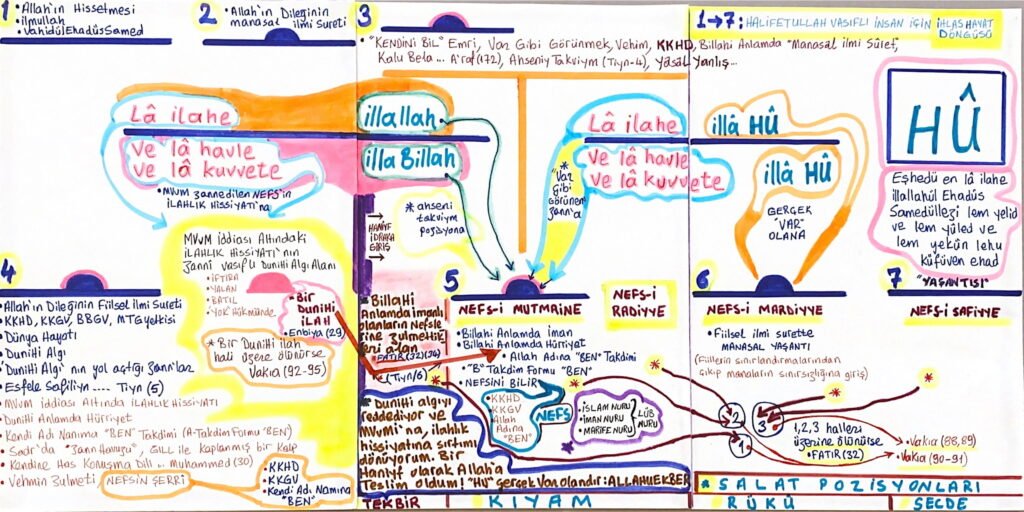 1 • Allah'ın Hissetmesi
• ilmullah
• VahidülEhadüsSamed
2 • Allah'ın Dileğinin
manasal ilmi Sureti
3
• "KENDİNİ BİL" Emri, Var Gibi Görünmek, Vehim, KKHD, Billahi Anlamda "Manasal ilmi Sûret",
Kalu Bela... A'raf(172), Ahseniy Takviym (Tiyn-4), Yasal Yanlış...
1→7: HALİFETULLAH VASIFLI İNSAN İÇİN İHLAS HAYAT
DÖNGÜSÜ
Lâ ilahe
illallah
Ve lâ havle
Ve lâ kuvvete
illa Billah
• MVVM zannedilen NEFS'in
İLAHLIK HİSSİYATI'na
* ahseni
takviym
pozisyonu
HANİF
İDRAKA
GİRİŞ
Lâ ilahe
illâ HÛ
Ve lâ havle
ve lâ kuvvete
illâ HÛ
* "Var
Gibi
Görünen
Zann'a
GERÇEK
"VAR"
OLANA
HÛ
Eşhedü en lâ ilahe
illallahül Ehadüs
Samedüllezi lem yelid
ve lem yüled ve
lem yekûn lehu
küfüven ehad
"YAŞANTISI"
4
• Allah'ın Dileğinin Fiilsel ilmi Sureti
• KKHD, KKGV, BBGV, MTG yetkisi
• Dünya Hayatı
• Dunihi Algı
• Dunihi Algı'nın yol açtığı zann'lar
• Esfele Safiliyn .... Tiyn (5)
• MVVM iddiası Altında İLAHLIK HİSSİYATI
• Dunihi Anlamda Hürriyet
• Kendi Adı Nanıma "BEN" Takdimi (A-Takdim Formu "BEN")
• Sadr'da "Zann Havuzu", GILL ile Kaplanmış bir Kalp
• Kendine Has Konuşma Dili ... Muhammed (30)
• Vehmin Zulmeti
NEFSİN ŞERRİ
• KKHD
• KKGV
• Kendi Adı Namına
"BEN"
MVVM iddiası Altındaki
İLAHLIK HİSSİYATI'nın
Zanni vasıflı Dunihi Algı Alanı
• İFTİRA
• YALAN
• BATIL
• YOK Hükmünde
• Bir
DUNİHİ
İLAH
• Enbiya (29)
* Bir Dunihi ilah
hali üzere ölünürse
Vakıa (92-95)
• Billahi
Anlamda imanlı
olanların Nefsle
rine zulmettik
leri alan
• FATIR (32)(36)
• (Tiyn/6)
* Dunihi algıyı
reddediyor ve
MVVM'ı'na, ilahlık
hissiyatına sırtımı
dönüyorum. Bir
Haniyf olarak Allah'a
Teslim oldum! "HU" gerçek Var Olandır: ALLAHUEKBER
5
NEFS-İ MUTMAİNE
NEFS-İ
RADİYYE
• Billahi Anlamda iman
• Billahi Anlamda Hürriyet
• Allah Adına "BEN" Takdimi
• "B" Takdim Formu "BEN"
• NEFSİNİ BİLİR
• KKHD
KKGV
Allah
Adına
"BEN"
NEFS
• İSLAM NURU
• İMAN NURU
• MARİFE NURU
LÜB
NURU
6
NEFS-İ MARDİYYE
• Fiilsel ilmi surette
MANASAL YAŞANTI
(Fiillerin sınırlandırmalarından
çıkıp manaların sınırsızlığına giriş)
7
NEFS-İ SAFİYYE
2
3
1
1,2,3 halleri
üzerine ölünürse
• FATIR(32)
• Vakıa (88,89)
• Vakıa (90-91)
* SALAT POZİSYONLARI
TEKBİR
KIYAM
RÜKÜ
SECDE